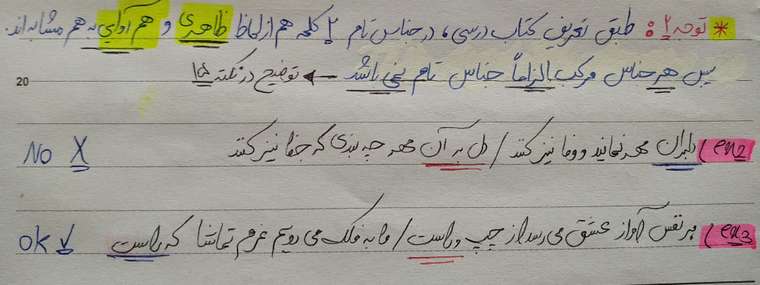 * توجه ۲: طبق تعریف کتاب درسی، در جناس تام ۲ کلمه هم از لحاظ ظاهری و هم آوایی به هم مشابه اند.
20 پس هر جناس مرکب الزاماً جناس تام نمی باشد ← توضیح در نکته ۱۵
ex2) دلبران مهر نمایند و وفا نیز کنند / دل به آن مهر چه بندی که جفا نیز کنند No X
ex3) هر نفس آواز عشق می رسد از چپ و راست / ما به فلک می رویم عزم تماشا که راست ok ✓